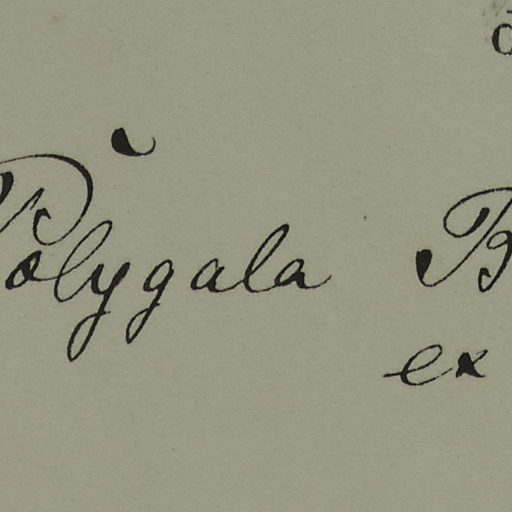 Polygala B
ex